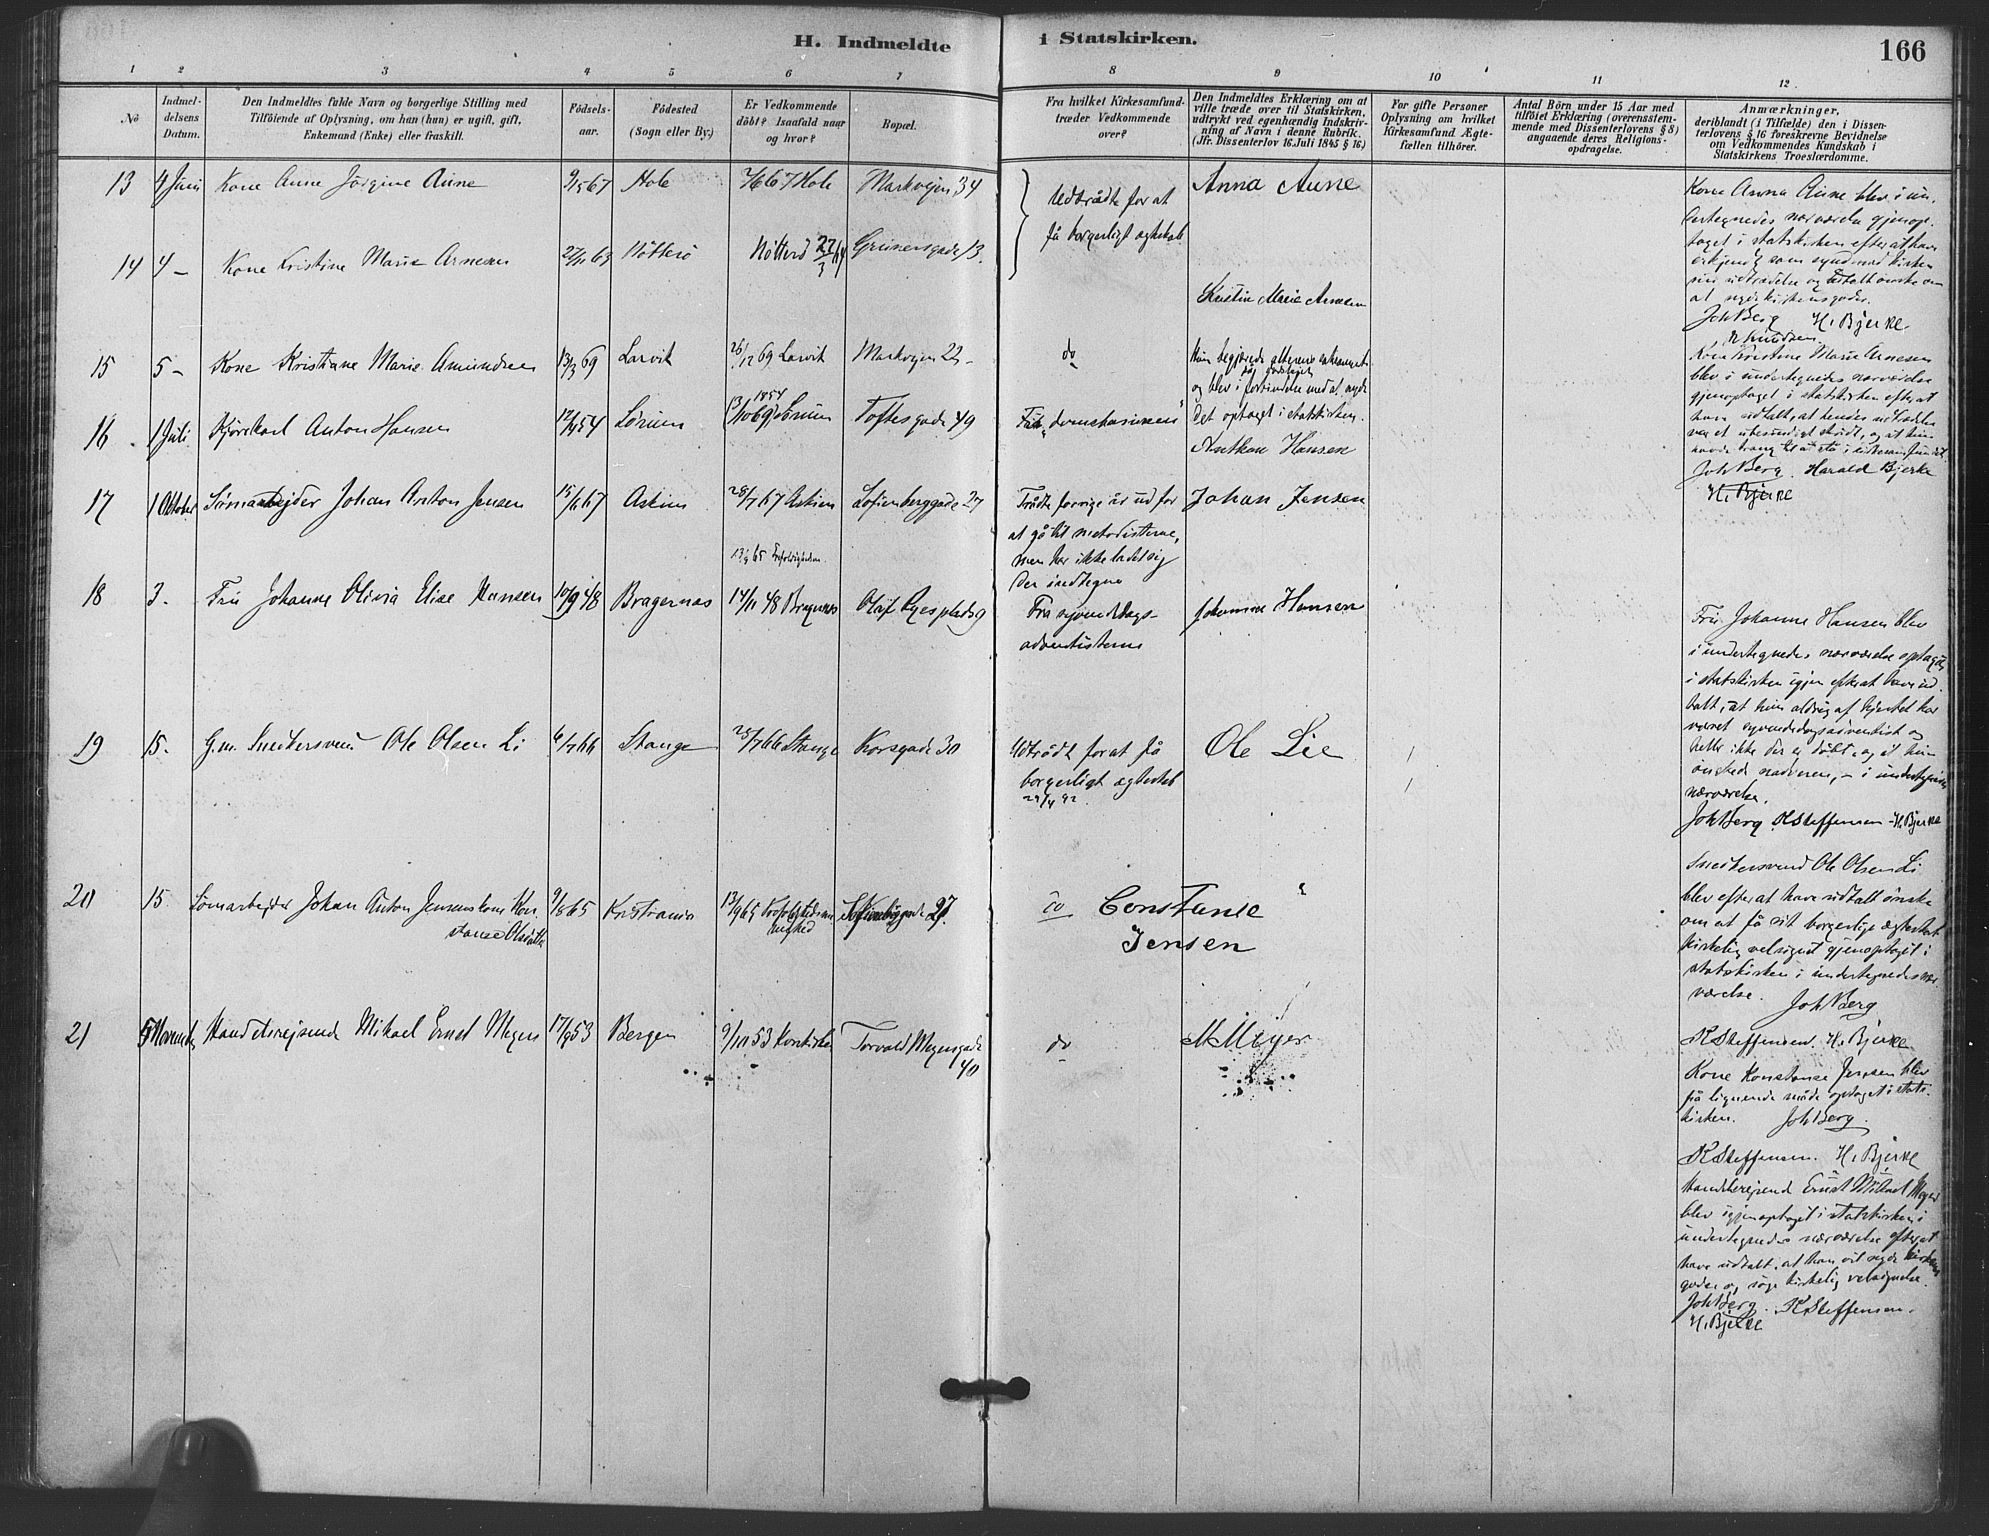 H. Indmeldte i Statskirken.
166
1 2 3 4 5 6 7 8 9 10 11 12
No
Indmel-
delsens
Datum.
Den Indmeldtes fulde Navn og borgerlige Stilling med
Tilföiende af Oplysning, om han (hun) er ugift, gift,
Enkemand (Enke) eller fraskilt.
Födsels-
aar.
Födested
(Sogn eller By.)
Er Vedkommende
döbt? Isaafald naar
og hvor?
Bopæl.
Fra hvilket Kirkesamfund
træder Vedkommende
over?
Den Indmeldtes Erklæring om at
ville træde over til Statskirken,
udtrykt ved egenhændig Indskriv-
ning af Navn i denne Rubrik.
(Jfr. Dissenterlov 16 Juli 1845 § 16)
For gifte Personer
Oplysning om hvilket
Kirkesamfund Ægte-
fællen tilhörer.
Antal Börn under 15 Aar med
tilföiet Erklæring (overensstem-
mende med Dissenterlovens § 8)
angaaende deres Religions-
opdragelse.
Anmærkninger,
deriblandt (i Tilfælde) den i Dissen-
terlovens § 16 foreskrevne Bevidnelse
om Vedkommendes Kundskab i
Statskirkens Troeslærdomme.
13 4 Juni Kone Anne Jörgine Aune 67 Hole Hole Markvejen 34
Uddtrådte for at
få borgerligt ægteskab
Anna Aune
Kone Anna Aune blev i un-
dertegnedes nærværelse gjenop-
taget i statskirken efter at have
erkjendt som synd mod kirken
sin udtrædelse og udtalt önske om
at nyde kirkens goder.
Joh Berg H. Bjerke
14 4 - Kone Kristine Marie Arnesen Nötterö Grünersgade 13.
Kristin Marie Arnesen
Kone Kristine Marie Arnesen
blev i undertegnedes nærværelse
gjenoptaget i statskirken efter at
have udtalt, at hendes udtrædelse
var et ubesindigt skridt, og at hun
havde trang til at stå i kirkesamfundet.
Joh Berg. Harald Bjerke
H. Bjerke
15 5 - Kone Kristiane Marie Amundsen 13/3 69 Larvik 26/12 69 Larvik Markvejen 22 -
do
og blev i forbindelse med at nyde
det optaget i statskirken.
16 1 Juli Kjörekarl Anton Hansen 54 Sörum 1854 Sörum Toftesgade 49
Anthon Hansen
17 1 Oktober Sömarbejder Johan Anton Jensen 67 Askim 28/7 67 Askim Sofienberggade 27
Trådte forrige år ud for
at gå til metodisterne,
men har ikke ladet sig
der indtegne
Johan Jensen
18 3. Fru Johanne Olivia Elise Hansen 10/9 48 Bragernæs 14/11 48 Bragernæs Olaf Ryesplads 9
Fra syvendedags-
adventisterne
Johanna Hansen
Fru Johanne Hansen blev
i undertegnedes nærværelse optaget
i statskirken igjen efter at have ud-
talt, at hun aldrig af hjertet har
været syvendedagsadventist og
heller ikke der er döbt, og at hun
önskede nadveren, - i undertegnedes
nærværelse.
Joh Berg K Steffensen - H. Bjerke
19 15. G.m. Snedkersvend Ole Olsen Li 6/7 66 Stange 25/7 66 Stange Korsgade 30
Udtrådt for at få
borgerligt ægteskab
29/4 92.
Ole Lie
Snedkersvend Ole Olsen Li
blev efter at have udtalt önske
om at få sit borgerlige ægteskab
kirkelig velsignet gjenoptaget i
statskirken i undertegnedes nær-
værelse. Joh Berg
K Steffensen. H. Bjerke
20 15. Sömarbejder Johan Anton Jensens kone Kon-
stanse 9/8 65 Kristiania 13/9 65 Sofienberggade 27.
do Constanse
Jensen
Kone Konstanse Jensen blev
på lignende måde optaget i stats-
kirken. Joh Berg.
K Steffensen. H. Bjerke
21 5 November Handelsrejsend Mikael Ernst Meyer 17/9 53 Bergen 9/10 53 Korskirken Torvald Meyersgade
40
do
M Meyer
Handelsrejsend Ernst Mikael Meyer
blev igjenoptaget i statskirken i
undertegnedes nærværelse efter at
have udtalt, at han vil nyde kirkens
goder og söge kirkelig velsignelse.
Joh Berg. K Steffensen.
H. Bjerke